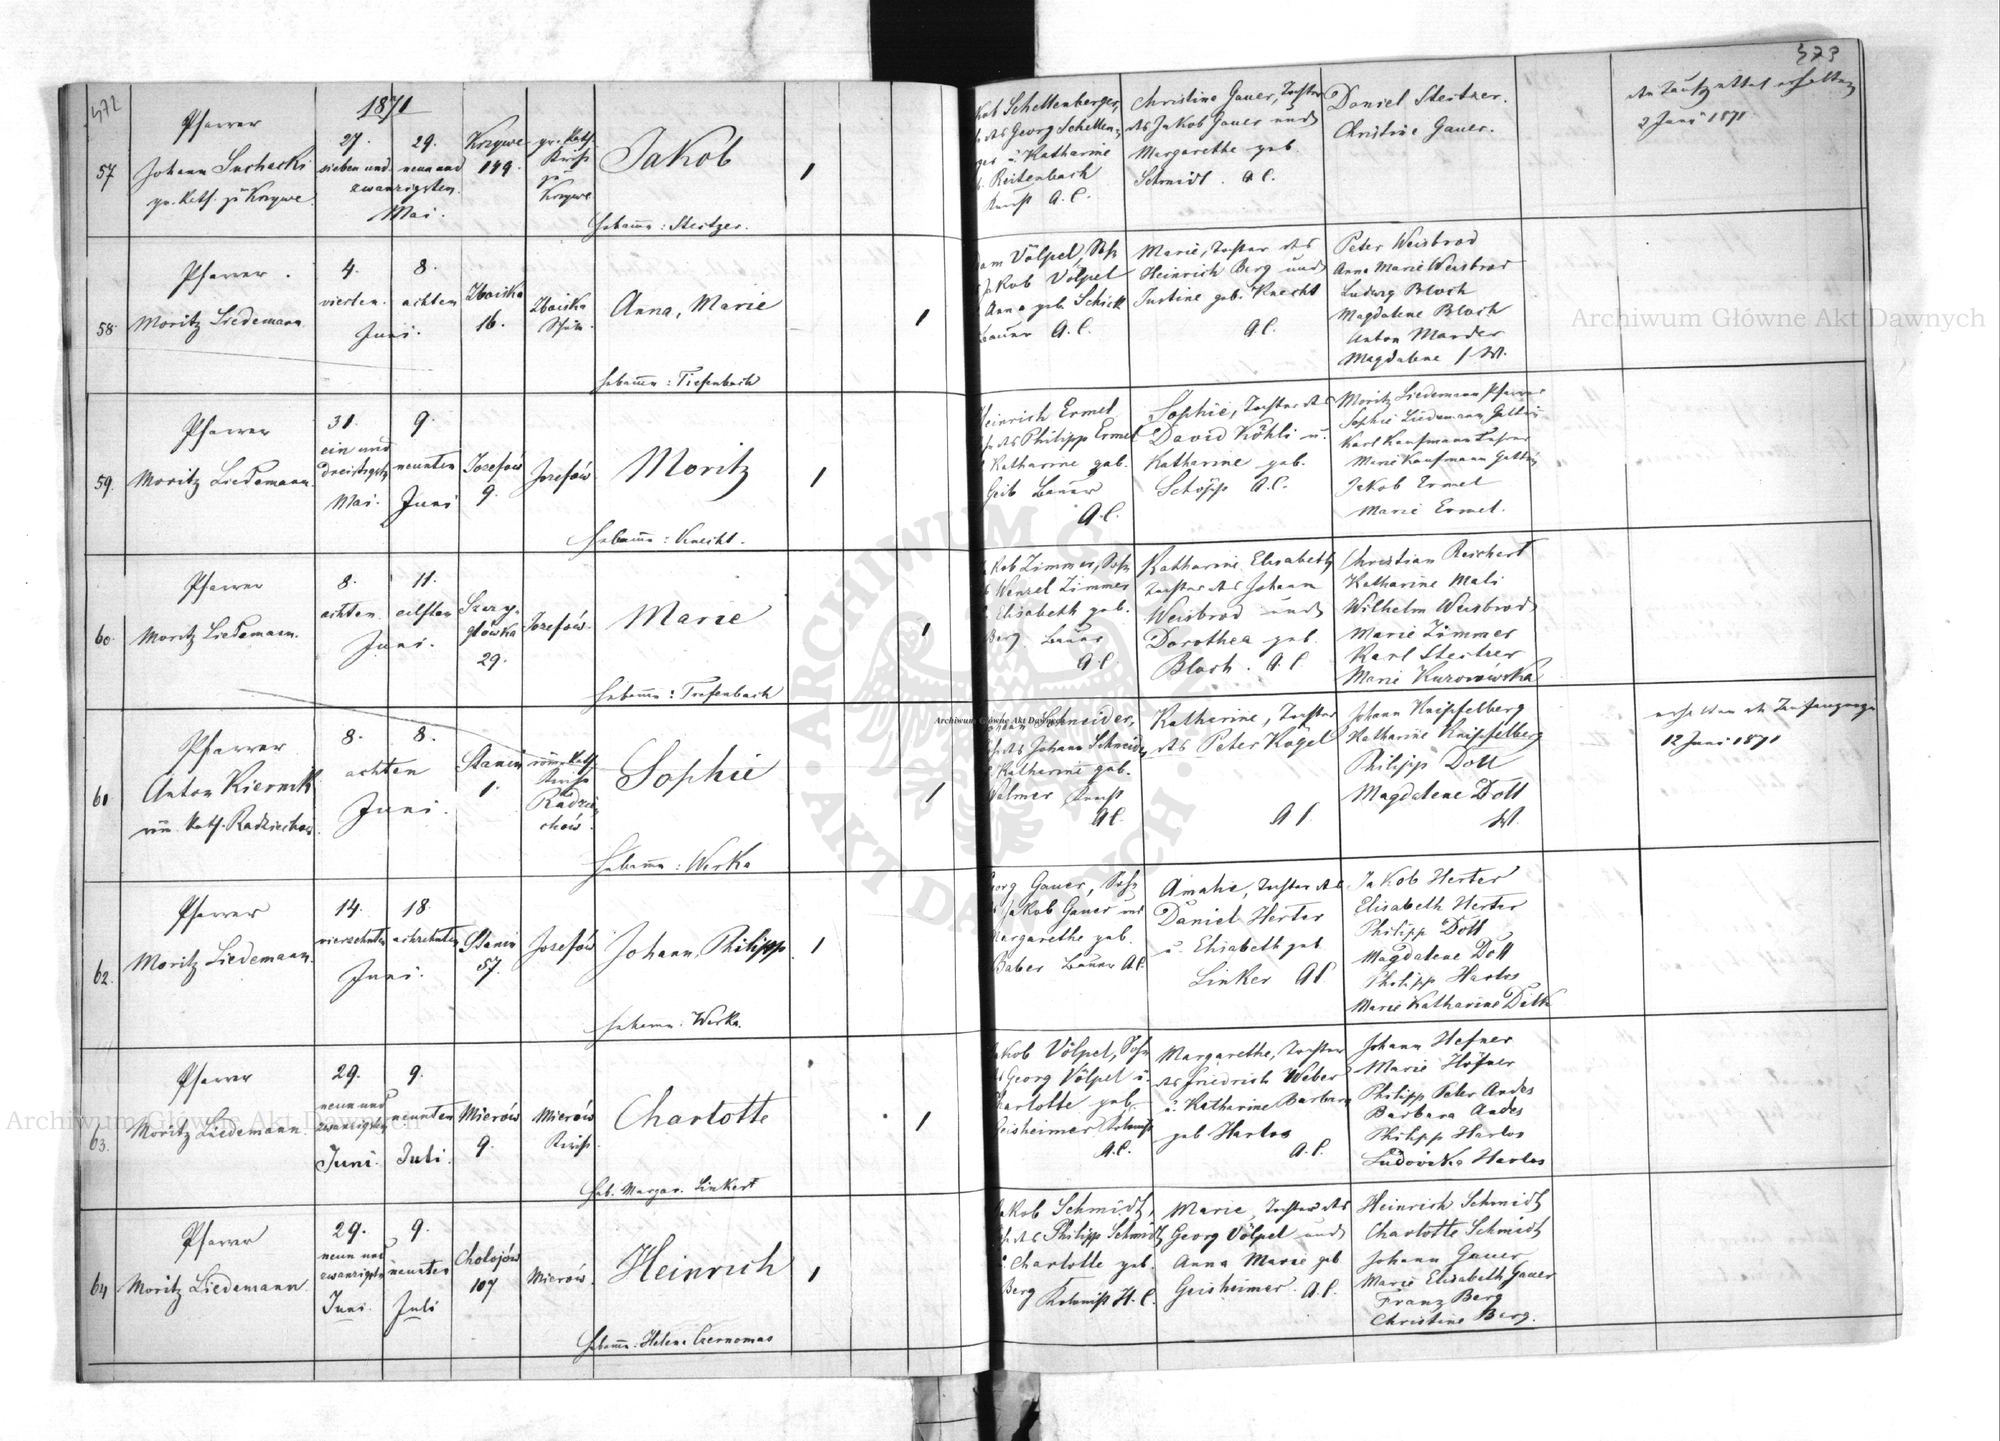 472
1871
57
Pfarrer
Johann Suchacki
gr. kath. zu Krzywe
27. 29.
sieben und neun und
zwanzigsten
Mai.
Krzywe
149.
gr. kath.
Kirche
zu
Krzywe
Jakob
1
Hebamme: Steitzer.
58.
Pfarrer.
Moritz Liedemann
4. 8.
vierten. achten
Juni.
Zboiska
16.
Zboiska
Schule.
Anna, Marie
1
Hebamme: Tiefenbach
59.
Pfarrer
Moritz Liedemann.
31. 9.
ein und
dreissigsten neunten
Mai. Juni
Josefów
9.
Josefów
Moritz
1
Hebamme: Knecht.
60.
Pfarrer
Moritz Liedemann.
8. 11.
achten. eilften
Juni.
29.
Josefów.
Marie
1
Hebamme: Tiefenbach
61
Pfarrer
Anton Kiernik
röm. kath. Radziechów.
8. 8.
achten
Juni.
Stanin
1.
röm. kath.
Kirche
zu
Radzie-
chów.
Sophie
1
Hebamme: Werka
62.
Pfarrer
Moritz Liedemann.
14. 18.
vierzehnten achtzehnten
Juni.
Stanin
57.
Josefów
Johann, Philipp.
1
Hebamme: Werka.
63.
Pfarrer
Moritz Liedemann.
29. 9.
neun und
zwanzigsten neunten
Juni. Juli.
Mierów
9.
Mierów
Kirche.
Charlotte
1
Heb. Margar. Linkert
64
Pfarrer
Moritz Liedemann.
29. 9.
neun und
zwanzigsten neunten
Juni. Juli
Cholojów
107
Mierów.
Heinrich
1
Hebamme: Helena Czernomas
473
Schellenberger,
Georg Schellen-
u. Katharine
Reitenbach
A. C.
Christine Gauer, Tochter
des Jakob Gauer und
Margarethe geb.
Schmidt. A. C.
Daniel Steitzer.
Christine Gauer.
den Taufzettel erhalten
2 Juni 1871.
Völpel, Sohn
Jakob Völpel
Anna geb. Schick
Bauer A. C.
Marie, Tochter des
Heinrich Berg und
Justine geb. Knecht
A. C.
Peter Weisbrod
Anna Marie Weisbrod
Ludwig Bloch
Magdalene Bloch
Anton Marder
Magdalene / W.
Heinrich Ermel
des Philipp Ermel
Katharine geb.
Geib Bauer
A. C.
Sophie, Tochter des
David Köhli u.
Katharine geb.
Schöpp A. C.
Moritz Liedemann Pfarrer
Sophie Liedemann Gattin
Karl Kaufmann Lehrer
Marie Kaufmann Gattin
Jakob Ermel
Marie Ermel.
Jakob Zimmer, Sohn
Wenzel Zimmer
Elisabeth geb.
Berg. Bauer
A. C.
Katharine Elisabeth
Tochter des Johann
Weisbrod und
Dorothea geb.
Bloch. A. C.
Christian Reichert
Katharine Mali
Wilhelm Weisbrod
Marie Zimmer
Karl Steitzer
Marie Kurowówska
Schneider,
des Johann Schneider
Katharine geb.
Welmer
A. C.
Katharine, Tochter
des Peter Kogel
A. C.
Johann Knipfelberg
Katharine Knipfelberg
Philipp Doll
Magdalene Doll
W.
12 Juni 1871
Georg Gauer, Sohn
Jakob Gauer und
Margarethe geb.
Baber Bauer A. C.
Amalie, Tochter des
Daniel Herter
u. Elisabeth geb
Linker A. C.
Jakob Herter
Elisabeth Herter
Philipp Doll
Magdalene Doll
Philipp Harlos
Marie Katharine
Jakob Völpel, Sohn
Georg Völpel u.
Charlotte geb.
Geisheimer Kolonist
A. C.
Margarethe, Tochter
des Friedrich Weber
u. Katharine Barbara
geb Harlos
A. C.
Johann Hefner
Marie Höfner
Philipp Peter Andes
Barbara Andes
Philipp Harlos
Ludovika Harlos
Jakob Schmidt,
des Philipp Schmidt
Charlotte geb.
Berg Kolonist H. C.
Marie, Tochter des
Georg Völpel und
Anna Marie geb
Geisheimer. A. C.
Heinrich Schmidt
Charlotte Schmidt
Johann Gauer
Marie Elisabeth Gauer
Franz Berg
Christine Berg.
Archiwum Główne Akt Dawnych
Archiwum Główne Akt Dawnych
Archiwum Główne Akt Dawnych